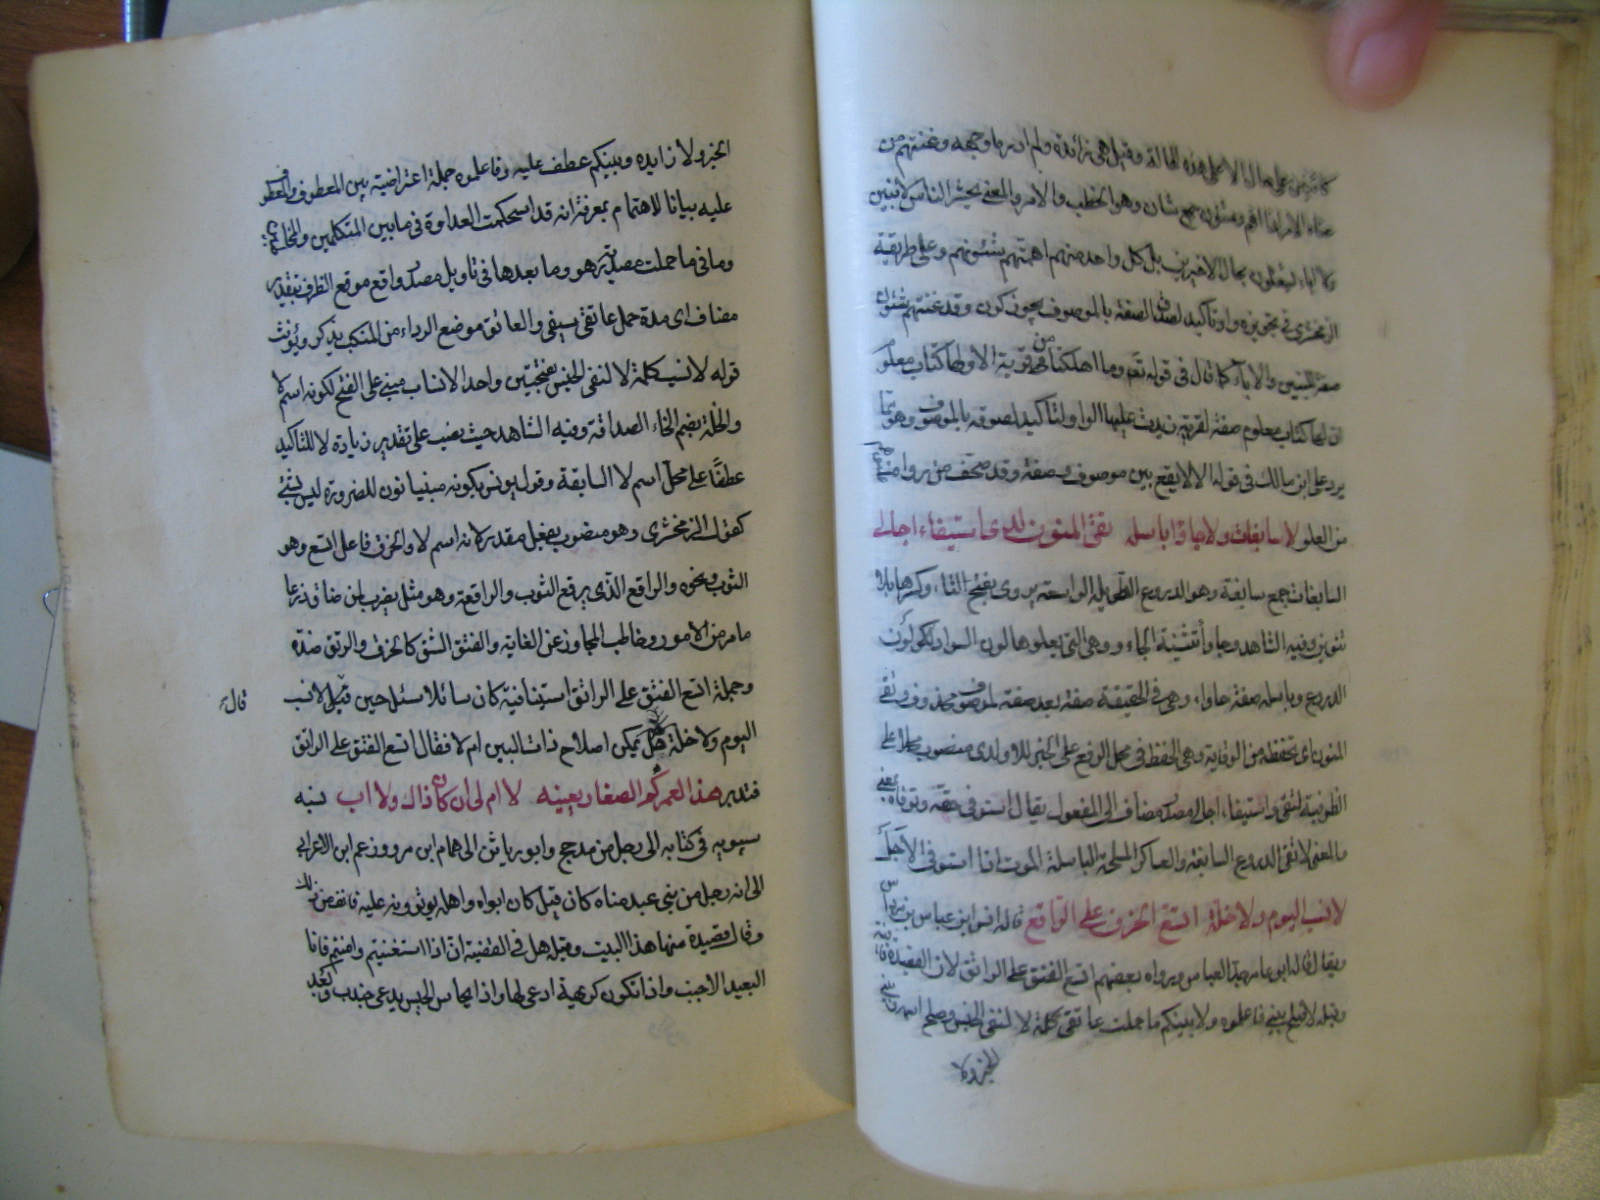 كائنين على حال الا على هذه الحالة وقيل هي زائدة ولم ادر ما وجهه وغنتهم من
ولا اباء ليفعلون بحال الاخيرين بل كل واحد منهم اهمتهم بشئونهم وعلى طريقة
الزمخشري في تجويزه واو تاكيد لصوق الصفة بالموصوف يجوز كون وقد غنتهم بشئون
صفة للبنين والاباء كما قال في قوله تعم وما اهلكنا من قرية الا ولها كتاب معلوم
ان لها كتاب معلوم صفة لقرية زيدت عليها الواو لتاكيد لصوقه بالموصوف وهو مما
يرد على ابن مالك في قوله الا لا يقع بين موصوف وصفة وقد صحف من روا
من العلو لا سابغات ولا جاوا باسلة تقى المنون لدى استيفاء اجال
السابغات جمع سابغة وهو الدروع الطويلة الواسعة يروى بفتح التاء وكسرها بلا
تنوين وفيه الشاهد وجاوا تثنية الجاء وهي التي يعلوها لون السواد لكون
الدروع وباسلة صفة جاواء وهي في الحقيقة صفة بعد صفة لموصوف محذوف وتقي
المنون اي تحفظه من الوقاية وهي الحفظ في محل الرفع على الخبر للا ولدى منصوب محلا على
الظرفية لتقي واستيفاء اجال مصدر مضاف الى المفعول يقال استوفى حقه وتوفاه بمعنى
والمعنى لا تقي الدروع السابغة والعساكر المسلحة الباسلة الموت اذا استوفى الاجل
لا نسب اليوم ولا خلة اتسع الخرق على الراقع قاله انس ابن عباس بن مرداس
ويقال قاله ابو عامر جد العباس ويرواه بعضهم اتسع الفتق على الراتق لان القصيدة قافية
وقبله لا صلح بيني فاعلموه ولا بينكم ما حملت عاتقي كلمة لا لنفي الجنس وصلح اسمه وبيني
الخبر ولا
الخبر ولا زايده وبينكم عطف عليه وفاعلموه جملة اعتراضية بين المعطوف والمعطوف
عليه بيانا للاهتمام بمعرفة انه قد استحكمت العداوة في ما بين المتكلمين والمخاطبين
وما في ما حملت مصدرية هو وما بعدها في تاويل مصدر واقع موقع الظرف بتقدير
مضاف اي مدة حمل عاتقي سيفي والعاتق موضع الرداء من المنكب يذكر ويؤنث
قوله لا نسب كلمة لا لنفي الجنس بفتحتين واحد الانساب مبني على الفتح لكونه اسم لا
والخلة بضم الخاء الصداقة وفيه الشاهد حيث نصب على تقدير زيادة لا للتاكيد
عطفًا على محل اسم لا السابقة وقول يونس بكونه مبنيا نون للضرورة ليس بشيئ
كقول الزمخشري وهو منصوب بفعل مقدر كانه اسم لا والخرق فاعل اتسع وهو
الثوب ونحوه والراقع الذي يرقع الثوب والراقعة وهو مثل يضرب لمن ضاق ذرعا
مامر من الامور وخاطب المجاوز عن الغاية والفتق الشق كالخرق والرتق ضده
وجملة اتسع الفتق على الراتق استينافية كان سائلا سئل حين قيل لا نسب
قال
اليوم ولا خلة هل يمكن اصلاح ذات البين ام لا فقال اتسع الفتق على الراتق
فتدبر هذا لعمركم الصغار بعينه لا ام لي ان كان ذاك ولا اب نسبه
سيبويه في كتابه الى رجل من مذحج وابو رياش الى همام ابن مره وزعم ابن الاعرابي
الى انه رجل من بني عبد مناه كان قيل كان ابواه واهله يوثرونه عليه فانف من ذلك
وقال قصيدة منها هذا البيت وقبله هل في القضية ان اذا استغنيتم وامنتم فانا
البعيد الاجنب واذا تكون كريهة ادعى لها واذا يحاس الحيس يدعى جندب وبعد